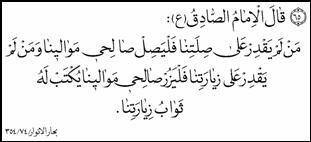 ٦٥ قَالَ الْاِمَامُ الصَّادِقُ (ع):
مَنْ لَمْ يَقْدِرْ عَلٰى صِلَتِنَا فَلْيَصِلْ صَالِحِى مَوَالِينَا وَمَنْ لَمْ
يَقْدِرْ عَلٰى زِيَارَتِنَا فَلْيَزُرْ صَالِحِى مَوَالِينَا يُكْتَبْ لَهُ
ثَوَابُ زِيَارَتِنَا.
بحار الانوار ٣٥٤/٧٤